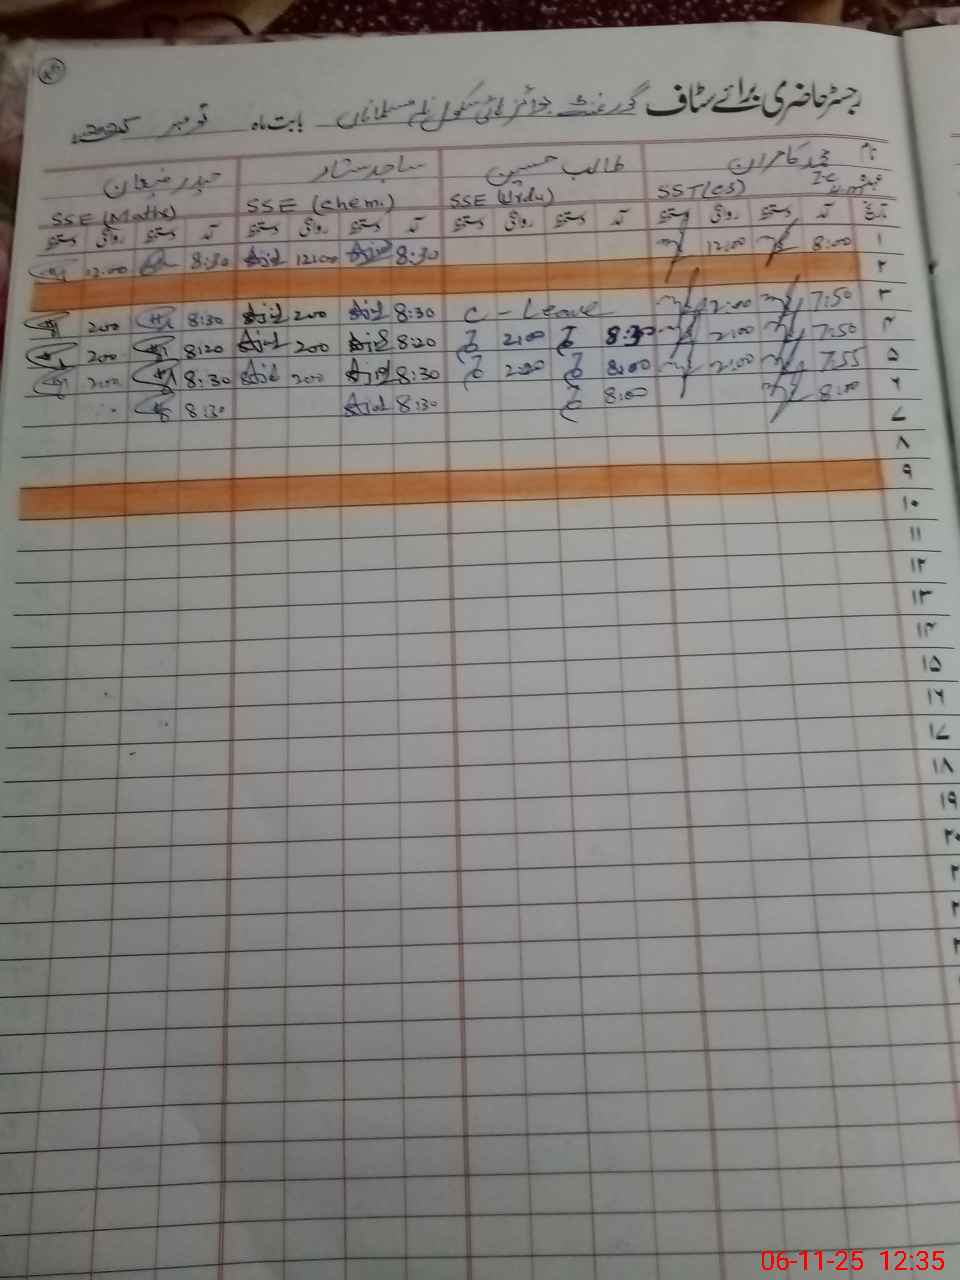 رجسٹر حاضری برائے سٹاف گورنمنٹ بوائز ہائی سکول بابت ماہ نومبر 2025ء
نام محمد کامران طالب حسین ساجد ستار حیدر
عہدہ SST(CS) I-C SSE (Urdu) SSE (Chem.) SSE (Maths)
تاریخ آمد دستخط روانگی دستخط آمد دستخط روانگی دستخط آمد دستخط روانگی دستخط آمد دستخط روانگی دستخط
۱ 8:00 12:00 8:30 Ajid 12:00 Ajid 8:30 12:00
۲
۳ 7:50 2:00 C - Leave 8:30 Ajid 200 Ajid 8:30 200
۴ 7:50 2:00 8:30 2:00 8:20 Ajid 200 Ajid 8:20 200
۵ 7:55 2:00 8:00 2:00 8:30 Ajid 200 Ajid 8:30 200
۶ 8:00 8:00 8:30 Ajid 8:30
۷
۸
۹
۱۰
۱۱
۱۲
۱۳
۱۴
۱۵
۱۶
۱۷
۱۸
۱۹
۲۰
06-11-25 12:35